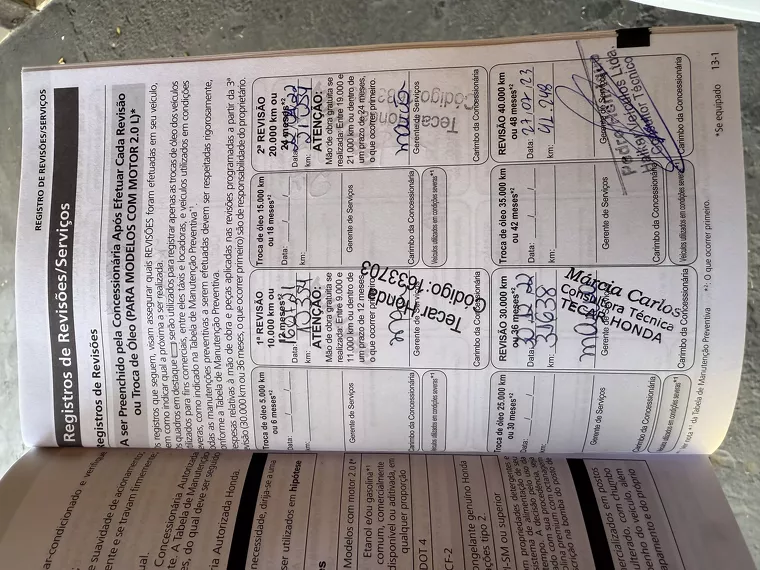 REGISTRO DE REVISÕES/SERVIÇOS
Registros de Revisões/Serviços
Registros de Revisões
A ser Preenchido pela Concessionária Após Efetuar Cada Revisão
ou Troca de Óleo (PARA MODELOS COM MOTOR 2.0 L)*
registros que seguem, visam assegurar quais REVISÕES foram efetuadas em seu veículo,
em como indicar qual a próxima a ser realizada.
s quadros em destaque serão utilizados para registrar apenas as trocas de óleo dos veículos
utilizados para fins comerciais, entre eles táxis e locadoras, e veículos utilizados em condições
everas, como indicado na Tabela de Manutenção Preventiva.
odas as manutenções preventivas a serem efetuadas devem ser respeitadas rigorosamente,
onforme a Tabela de Manutenção Preventiva.
espesas relativas à mão de obra e peças aplicadas nas revisões programadas a partir da 3ª
evisão (30.000 km ou 36 meses, o que ocorrer primeiro) são de responsabilidade do proprietário.
Troca de óleo 5.000 km
ou 6 meses*²
Data: / /
km:
Gerente de Serviços
Carimbo da Concessionária
Veículos utilizados em condições severas*¹
1ª REVISÃO
10.000 km ou
12 meses*²
Data:
km: 10.334
ATENÇÃO:
Mão de obra gratuita se
realizada: Entre 9.000 e
11.000 km ou dentro de
um prazo de 12 meses,
o que ocorrer primeiro.
Tecar Honda
Código: 633703
Carimbo da Concessionária
Troca de óleo 15.000 km
ou 18 meses*²
Data: / /
km:
Gerente de Serviços
Carimbo da Concessionária
Veículos utilizados em condições severas*¹
2ª REVISÃO
20.000 km ou
24 meses*²
Data:
km:
ATENÇÃO:
Mão de obra gratuita se
realizada: Entre 19.000 e
21.000 km ou dentro de
um prazo de 24 meses,
o que ocorrer primeiro.
Gerente de Serviços
Carimbo da Concessionária
Troca de óleo 25.000 km
ou 30 meses*²
Data: / /
km:
Gerente de Serviços
Carimbo da Concessionária
Veículos utilizados em condições severas*¹
REVISÃO 30.000 km
ou 36 meses*²
Data:
km: 31638
Márcia Carlos
Consultora Técnica
TECAR HONDA
Carimbo da Concessionária
Troca de óleo 35.000 km
ou 42 meses*²
Data: / /
km:
Gerente de Serviços
Carimbo da Concessionária
Veículos utilizados em condições severas*¹
REVISÃO 40.000 km
ou 48 meses*²
Data: 27.07.23
km: 41.248
Gerente de Serviços
Carimbo da Concessionária
da Tabela de Manutenção Preventiva
*²: O que ocorrer primeiro.
*Se equipado
13-1
ar-condicionado, e
e suavidade de acionamento,
ente e se travam firmemente
ual.
Concessionária Autorizada
te. A Tabela de Manutenção
es, do qual deve ser seguido
ia Autorizada Honda.
necessidade, dirija-se a uma
ser utilizados em hipótese
Modelos com motor 2.0 l*
Etanol e/ou gasolina*¹
comum, comercialmente
disponível ou aditivada, em
qualquer proporção
DOT 4
CF-2
ongelante genuíno Honda
ções tipo 2.
-SM ou superior